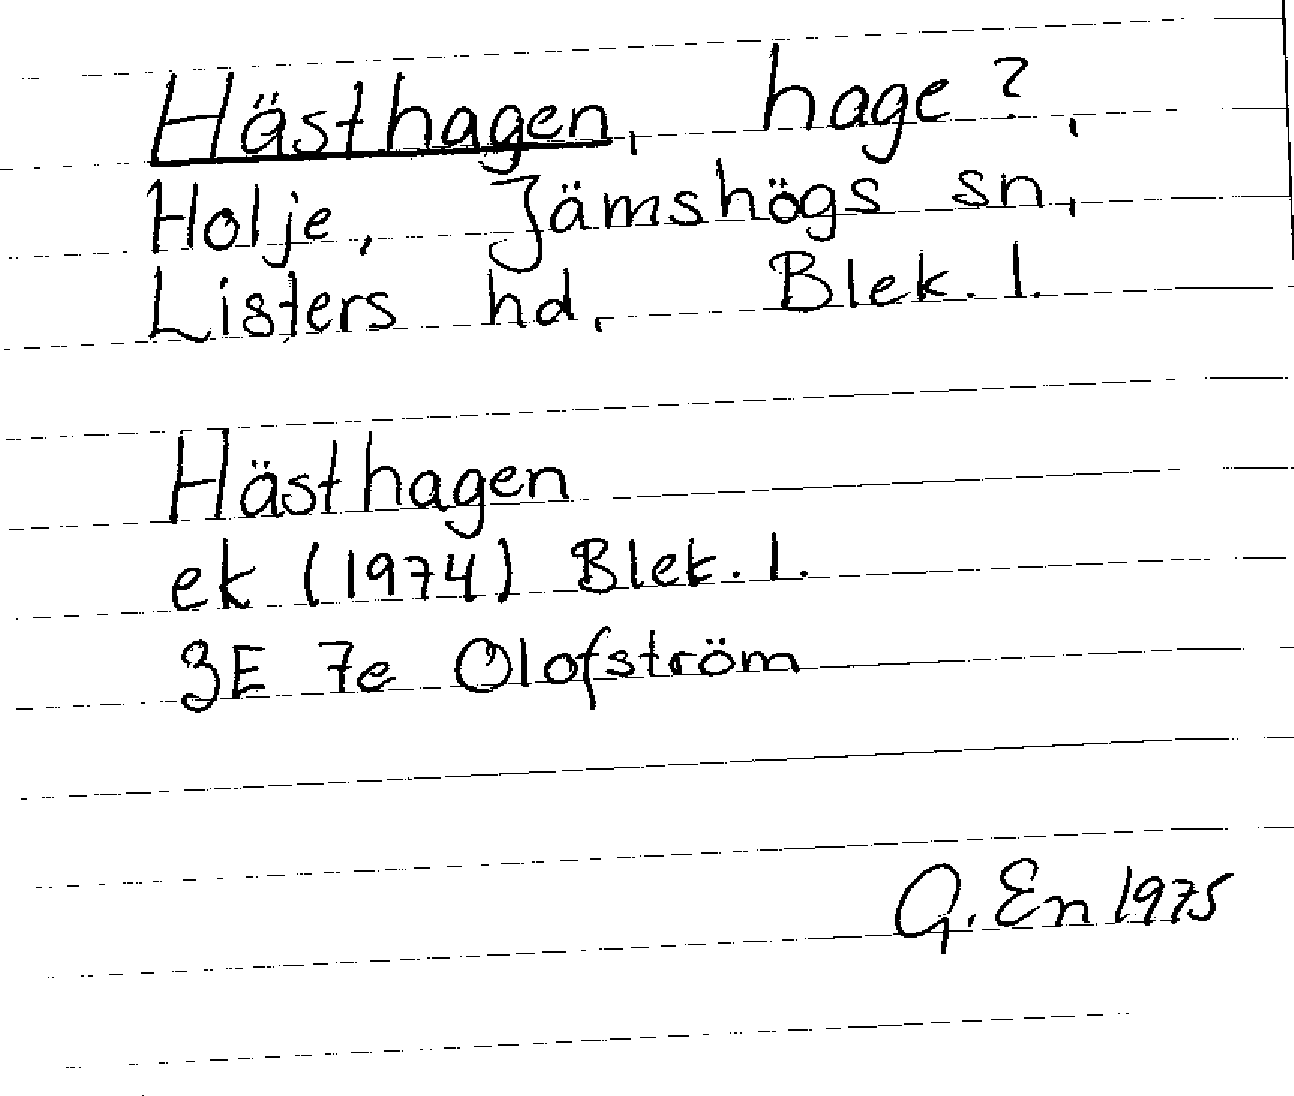 Hästhagen, hage?,
Holje, Jämshögs sn,
Listers hd, Blek. l.
Hästhagen
ek (1974) Blek. l.
3E 7e Olofström
G. En 1975